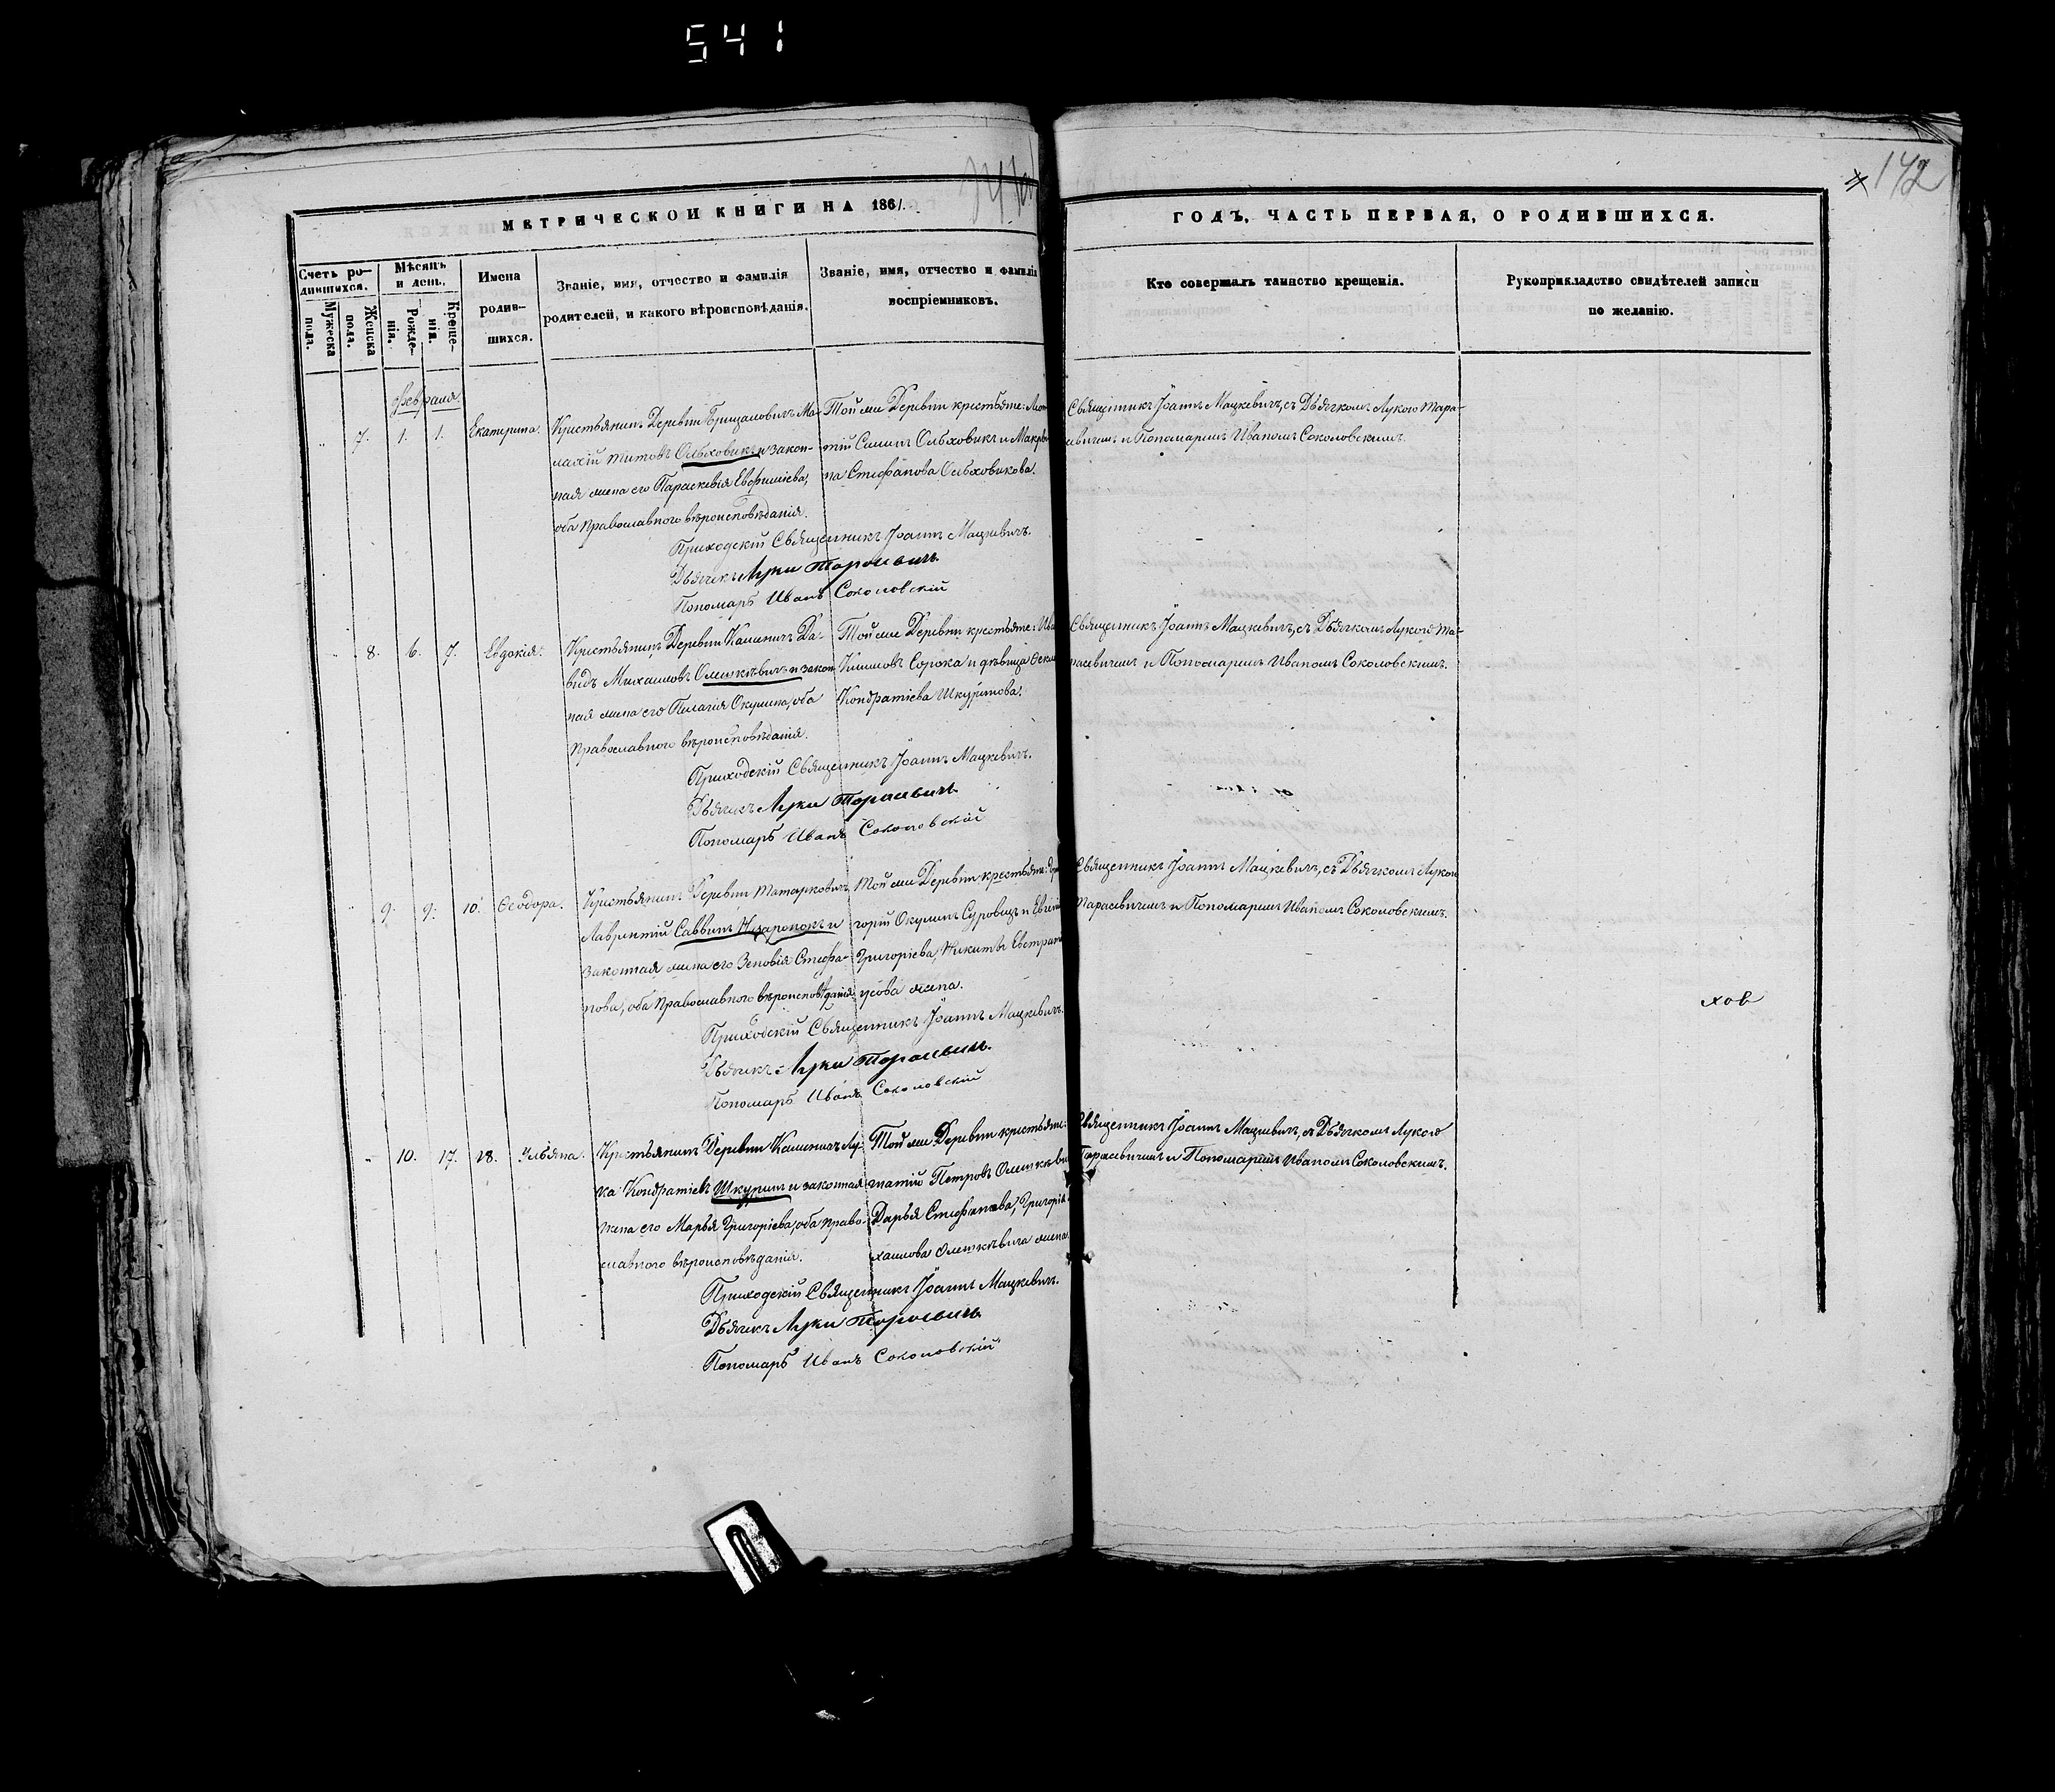 541
142
МЕТРИЧЕСКОЙ КНИГИ НА 1861.
ГОДЪ, ЧАСТЬ ПЕРВАЯ, О РОДИВШИХСЯ.
Счетъ ро-
дившихся.
Мужеска
пола.
Женска
пола.
Мѣсяцъ
и день.
Рожде-
нія.
Креще-
нія.
Имена
родив-
шихся.
Званіе, имя, отчество и фамилія
родителей, и какого вѣроисповѣданія.
Званіе, имя, отчество и фамилія
воспріемниковъ.
Кто совершалъ таинство крещенія.
Рукоприкладство свидѣтелей записи
по желанію.
Февраля.
7. 1. 1. Екатерина.
Крестьянинъ Деревни Грицаловичъ Ма-
лахій Титовъ Ольховикъ и закон-
ная жена его Параскевія Евфиміева,
оба Православнаго вѣроисповѣданія.
Той же Деревни крестьяне:
Ольховикъ и
на Стефанова Ольховикова.
Священникъ Іоаннъ Мацкевичъ, съ Дьячкомъ Лукою Тара-
севичемъ и Пономаремъ Иваномъ Соколовскимъ.
Приходскій Священникъ Іоаннъ Мацкевичъ.
Дьячекъ Лука Тарасевичъ
Пономарь Иванъ Соколовскій
8. 6. 7. Евдокія.
Крестьянинъ Деревни Каменичъ Да-
видъ Михаиловъ Олешкѣвичъ и закон-
ная жена его Пелагія Окулина, оба
Православнаго вѣроисповѣданія.
Той же Деревни крестьяне: Ива
Климовъ Сорока и дѣвица
Кондратіева Шкуритова.
Священникъ Іоаннъ Мацкевичъ, съ Дьячкомъ Лукою Та-
расевичемъ и Пономаремъ Иваномъ Соколовскимъ.
Приходскій Священникъ Іоаннъ Мацкевичъ.
Дьячекъ Лука Тарасевичъ
Пономарь Иванъ Соколовскій
9. 9. 10. Ѳеодора.
Крестьянинъ Деревни Татарковичъ
Лаврентій Саввинъ Назаренокъ и
законная жена его Зеновія Стефа-
нова, оба Православнаго вѣроисповѣданія.
Той же Деревни крестьяне: Гри
горій Окулинъ Суровецъ и Евгенія
Григоріева, Никиты Евстрат
усова жена.
Священникъ Іоаннъ Мацкевичъ, съ Дьячкомъ Лукою
Тарасевичемъ и Пономаремъ Иваномъ Соколовскимъ.
хов
Приходскій Священникъ Іоаннъ Мацкевичъ.
Дьячекъ Лука Тарасевичъ
Пономарь Иванъ Соколовскій
10. 17. 18. Ульяна.
Крестьянинъ Деревни Каменичъ Лу-
ка Кондратіевъ Шкуритъ и законная
жена его Марья Григоріева, оба Право-
славнаго вѣроисповѣданія.
Той же Деревни крестьяне:
натій Петровъ Олешкѣви
Дарья Стефанова, Григорія
хаилова Олешкѣвича жена.
Священникъ Іоаннъ Мацкевичъ, съ Дьячкомъ Лукою
Тарасевичемъ и Пономаремъ Иваномъ Соколовскимъ.
Приходскій Священникъ Іоаннъ Мацкевичъ.
Дьячекъ Лука Тарасевичъ
Пономарь Иванъ Соколовскій